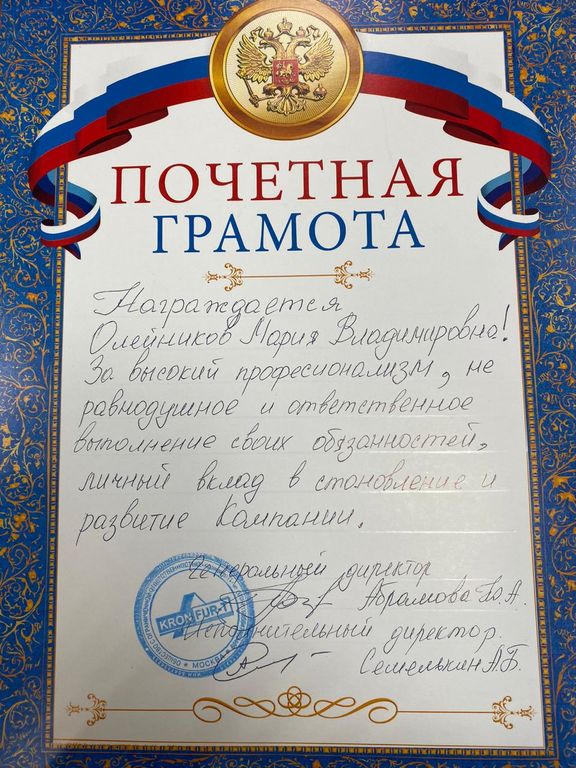 ПОЧЕТНАЯ
ГРАМОТА
Награждается
Олейников Мария Владимировна!
За высокий професионализм, не
равнодушное и ответственное
выполнение своих обязанностей,
личный вклад в становление и
развитие Компании.
Генеральный директор
Абрамова Ю.А.
Исполнительный директор.
Семелькин А.Б.
KRON FUR
МОСКВА